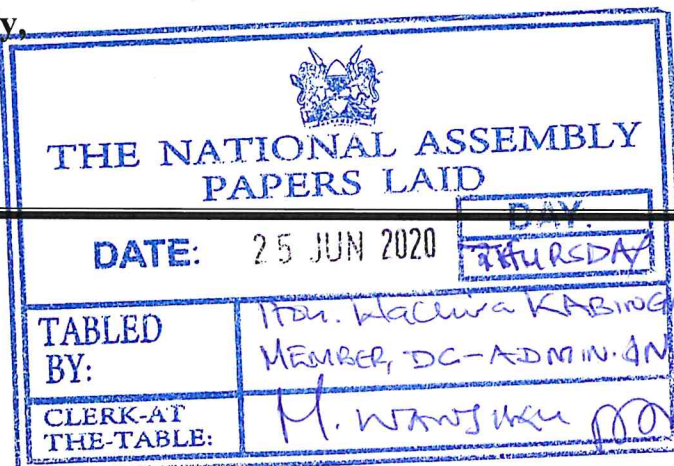 y,
THE NATIONAL ASSEMBLY
PAPERS LAID
DATE: 25 JUN 2020
DAY.
THURSDAY
TABLED BY:
Hon. Wachira KABING
MEMBER, DC-ADMIN. &N
CLERK-AT THE-TABLE:
M. WANJIKU